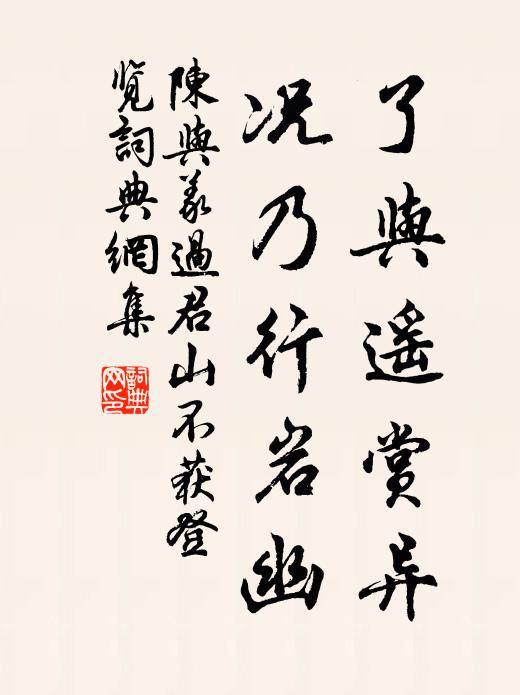 了與遥赏异
况乃行岩幽
陳與义過君山不获登
览詞典網集
詞典网印